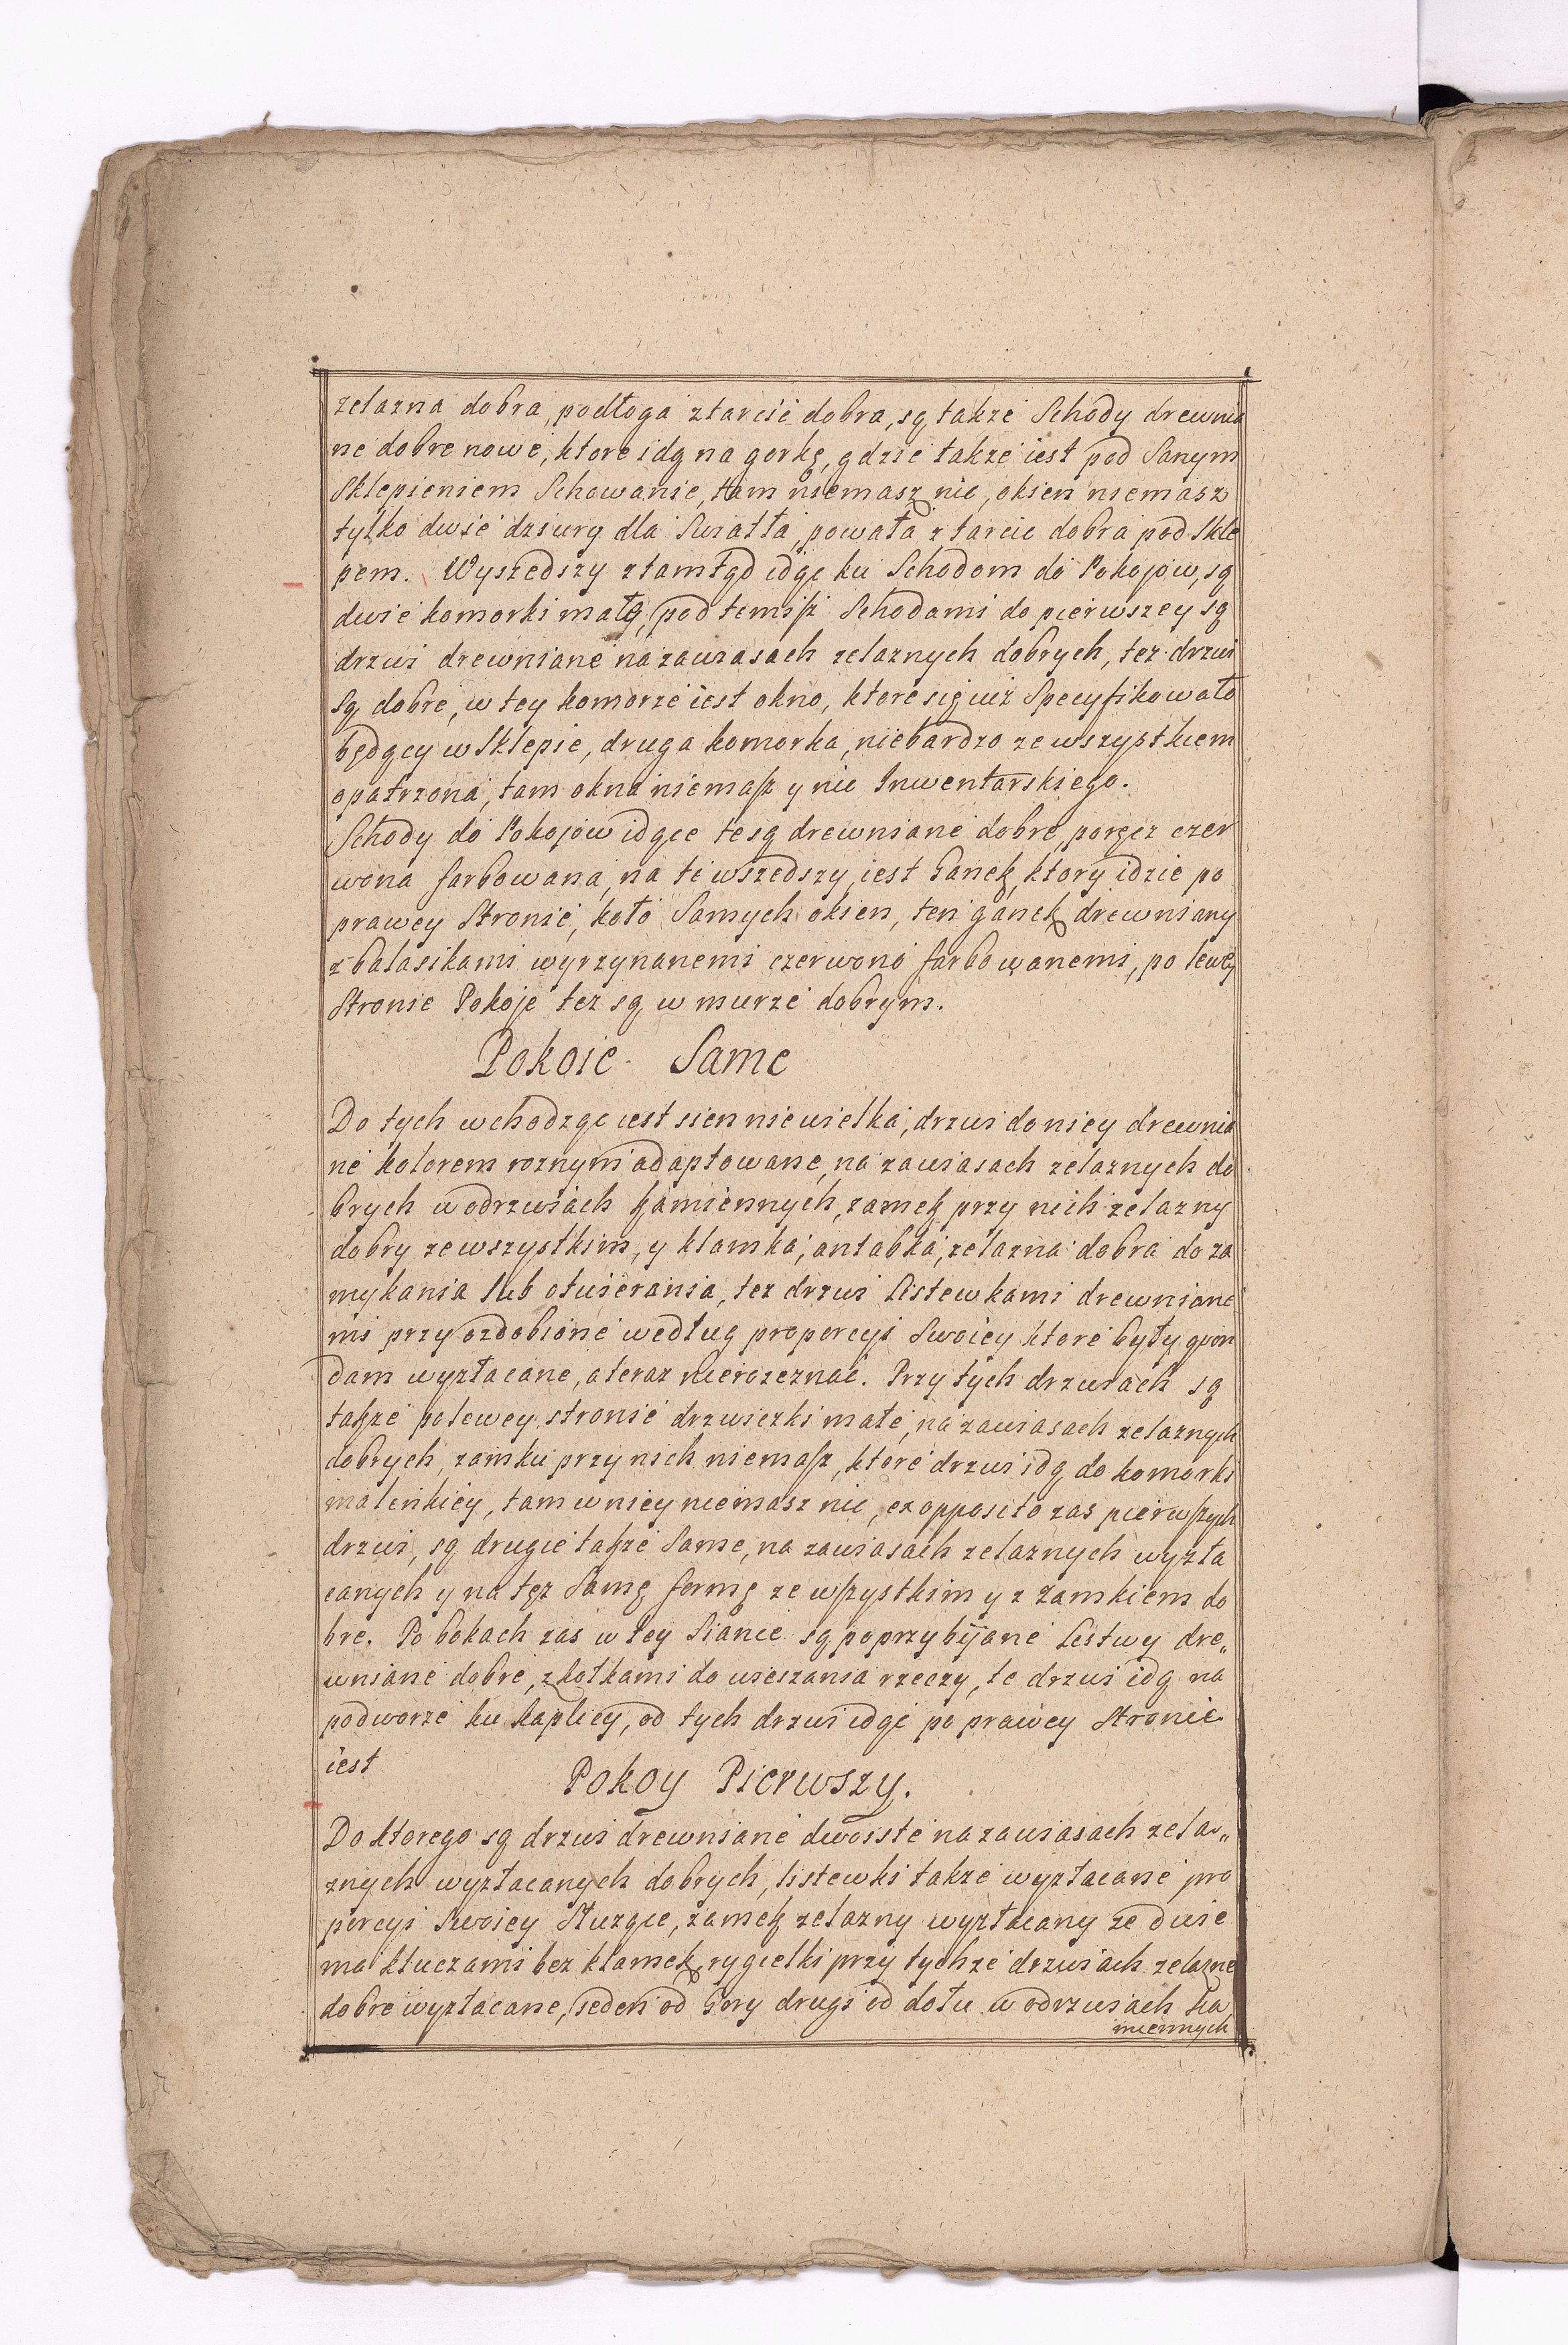 zelazna dobra, podłoga ztarcić dobra, są takze Schody drewnia
ne dobre nowe, ktore idą na gorkę, gdzie takze iest pod Samym
Sklepieniem Schowanie, tam niemasz nic, okien niemasz
tylko dwie dziury dla Swiatła, powała z tarcic dobra pod Skle
pem. Wyszedszy ztamtąd idąc ku Schodom do Pokojow, są
dwie komorki małę, pod temisz Schodami do pierwszey są
drzwi drewniane na zawiasach zelaznych dobrych, tez drzwi
Są dobre, w tey komorze iest okno, ktore się iuz Specyfikowało
będący w Sklepie, druga komorka, niebardzo ze wszystkiem
opatrzona, tam okna niemasz y nic Inwentarskiego.
Schody do Pokojow idące te są drewniane dobre, poręcz czer
wona farbowana, na te wszedszy, iest Ganek, ktory idzie po
prawey Stronie, koło Samych okien, ten ganek drewniany
z balasikami wyrzynanemi czerwono farbowanemi, po lewey
Stronie Pokoje tez są w murze dobrym.
Pokoie Same
Do tych wchodząc iest sien niewielka, drzwi do niey drewnia
ne kolorem roznym adaptowane, na zawiasach zelaznych do
brych w odrzwiach kamiennych, zamek przy nich zelazny
dobry ze wszystkim, y klamka, antabka, zelazna dobra do za
mykania lub otwierania, tez drzwi Listewkami drewniane
mi przyozdobione według propercyi Swoiey ktore były qvon
dam wyzłacane, a teraz nierozeznać. Przy tych drzwiach są
takze po lewey stronie drzwiczki małe, na zawiasach zelaznych
dobrych, zamku przy nich niemasz, ktore drzwi idą do komorki
maleńkiey, tam w niey niemasz nic, ex opposito zas pierwszych
drzwi, są drugie takze Same, na zawiasach zelaznych wyzła
canych y na tęz Samę formę ze wszystkim y z zamkiem do
bre. Po bokach zas w tey Sianie są poprzybijane Lestwy dre„
wniane dobre, z kołkami do wieszania rzeczy, te drzwi idą na
podworze ku kaplicy, od tych drzwi idąc po prawey Stronie
iest
Pokoy Pierwszy.
Do ktorego są drzwi drewniane dwoiste na zawiasach zela„
znych wyzłacanych dobrych, listewki takze wyzłacane pro
percyi Swoiey Słuzące, zamek zelazny wyzłacany ze dwie
ma kluczami bez klamek, rygielki przy tychze drzwiach zelazne
dobre wyzłacane, ieden od Gory drugi od dołu w odrzwiach ka
miennych